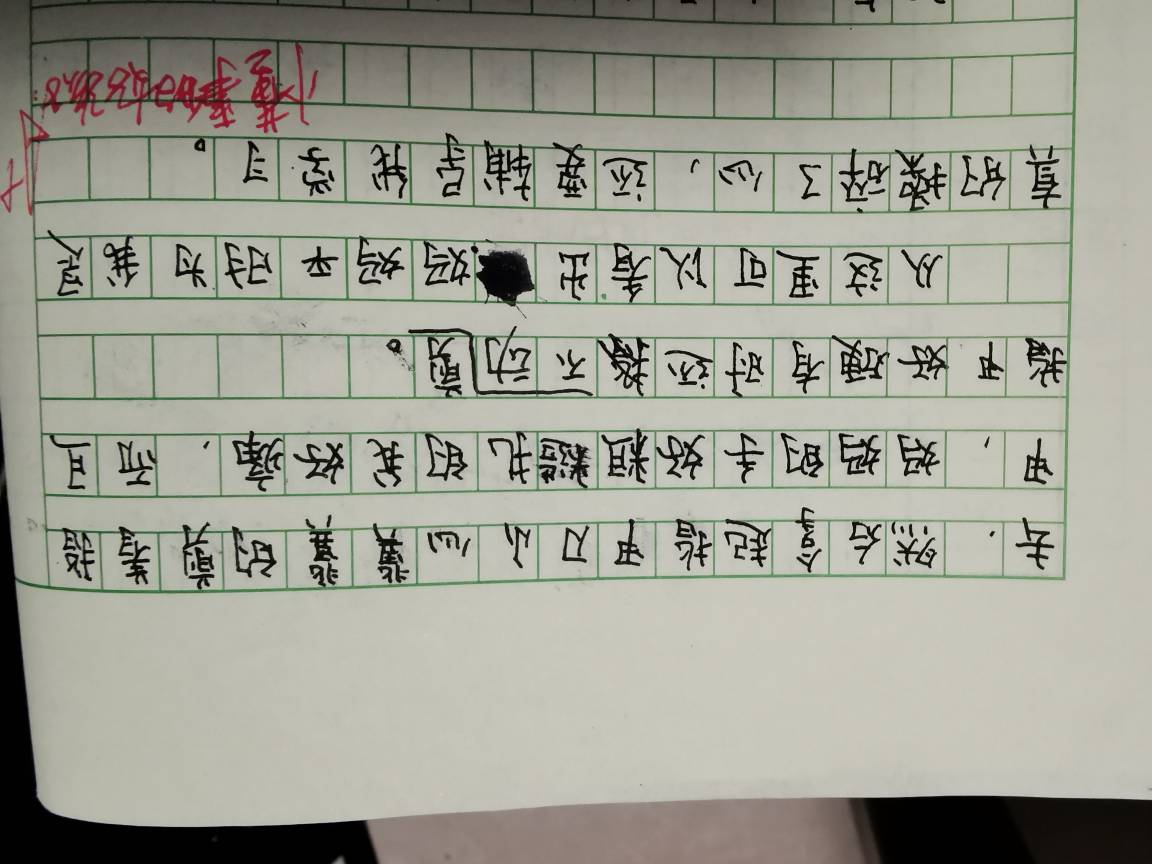 去，然后拿起指甲刀小心翼翼的剪着指
甲，妈妈的手好粗糙扎的我好痛，而且
指甲好硬有时还不动剪。
从这里可以看出妈妈平时为我是
真的操碎了心，还要辅导我学习。
个懂事的好孩